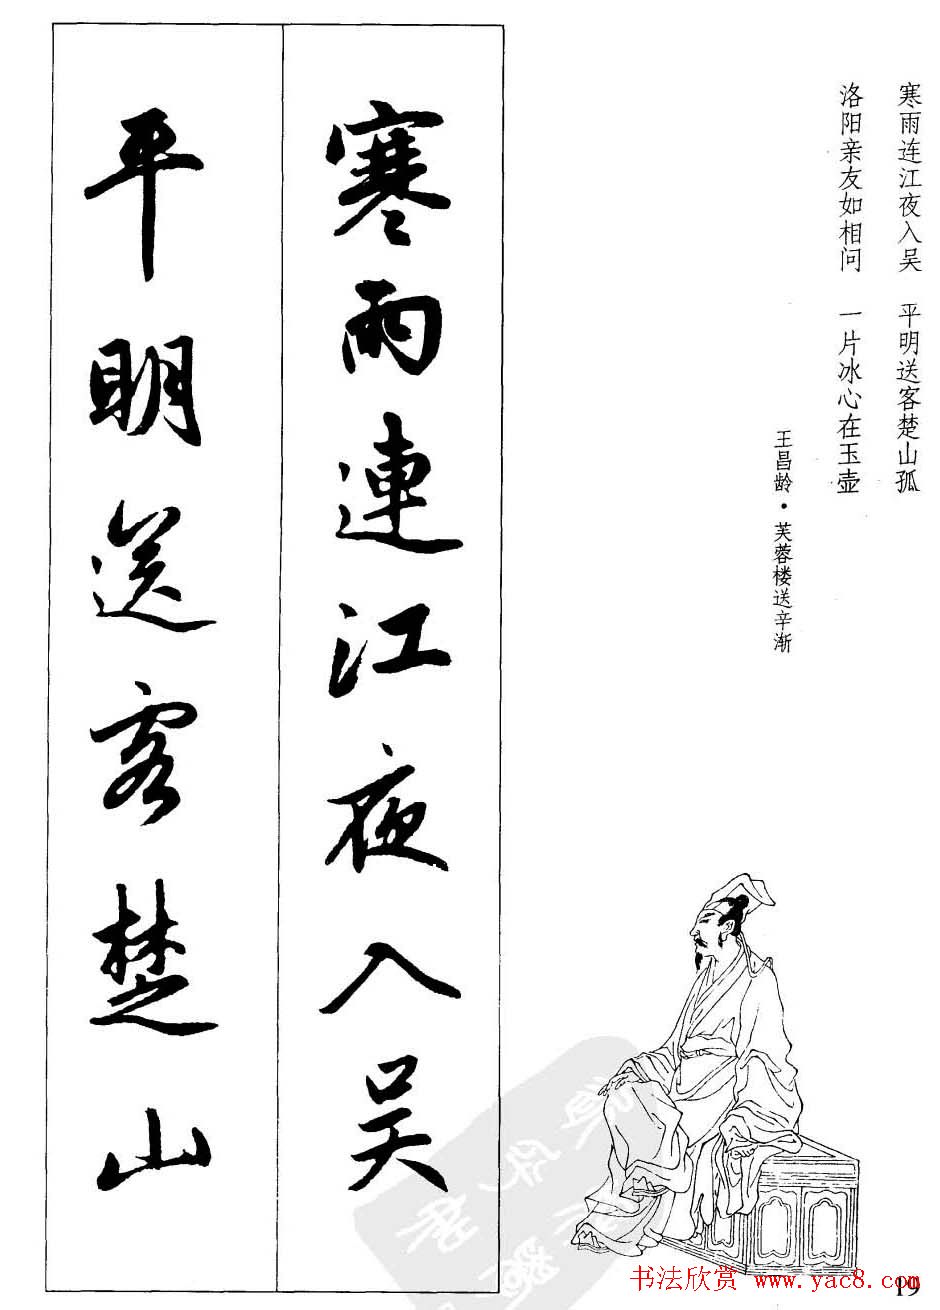 寒雨连江夜入吴 平明送客楚山孤
洛阳亲友如相问 一片冰心在玉壶
王昌龄·芙蓉楼送辛渐
寒雨連江夜入吴
平明送客楚山
书法欣赏 www.yac8.com
19